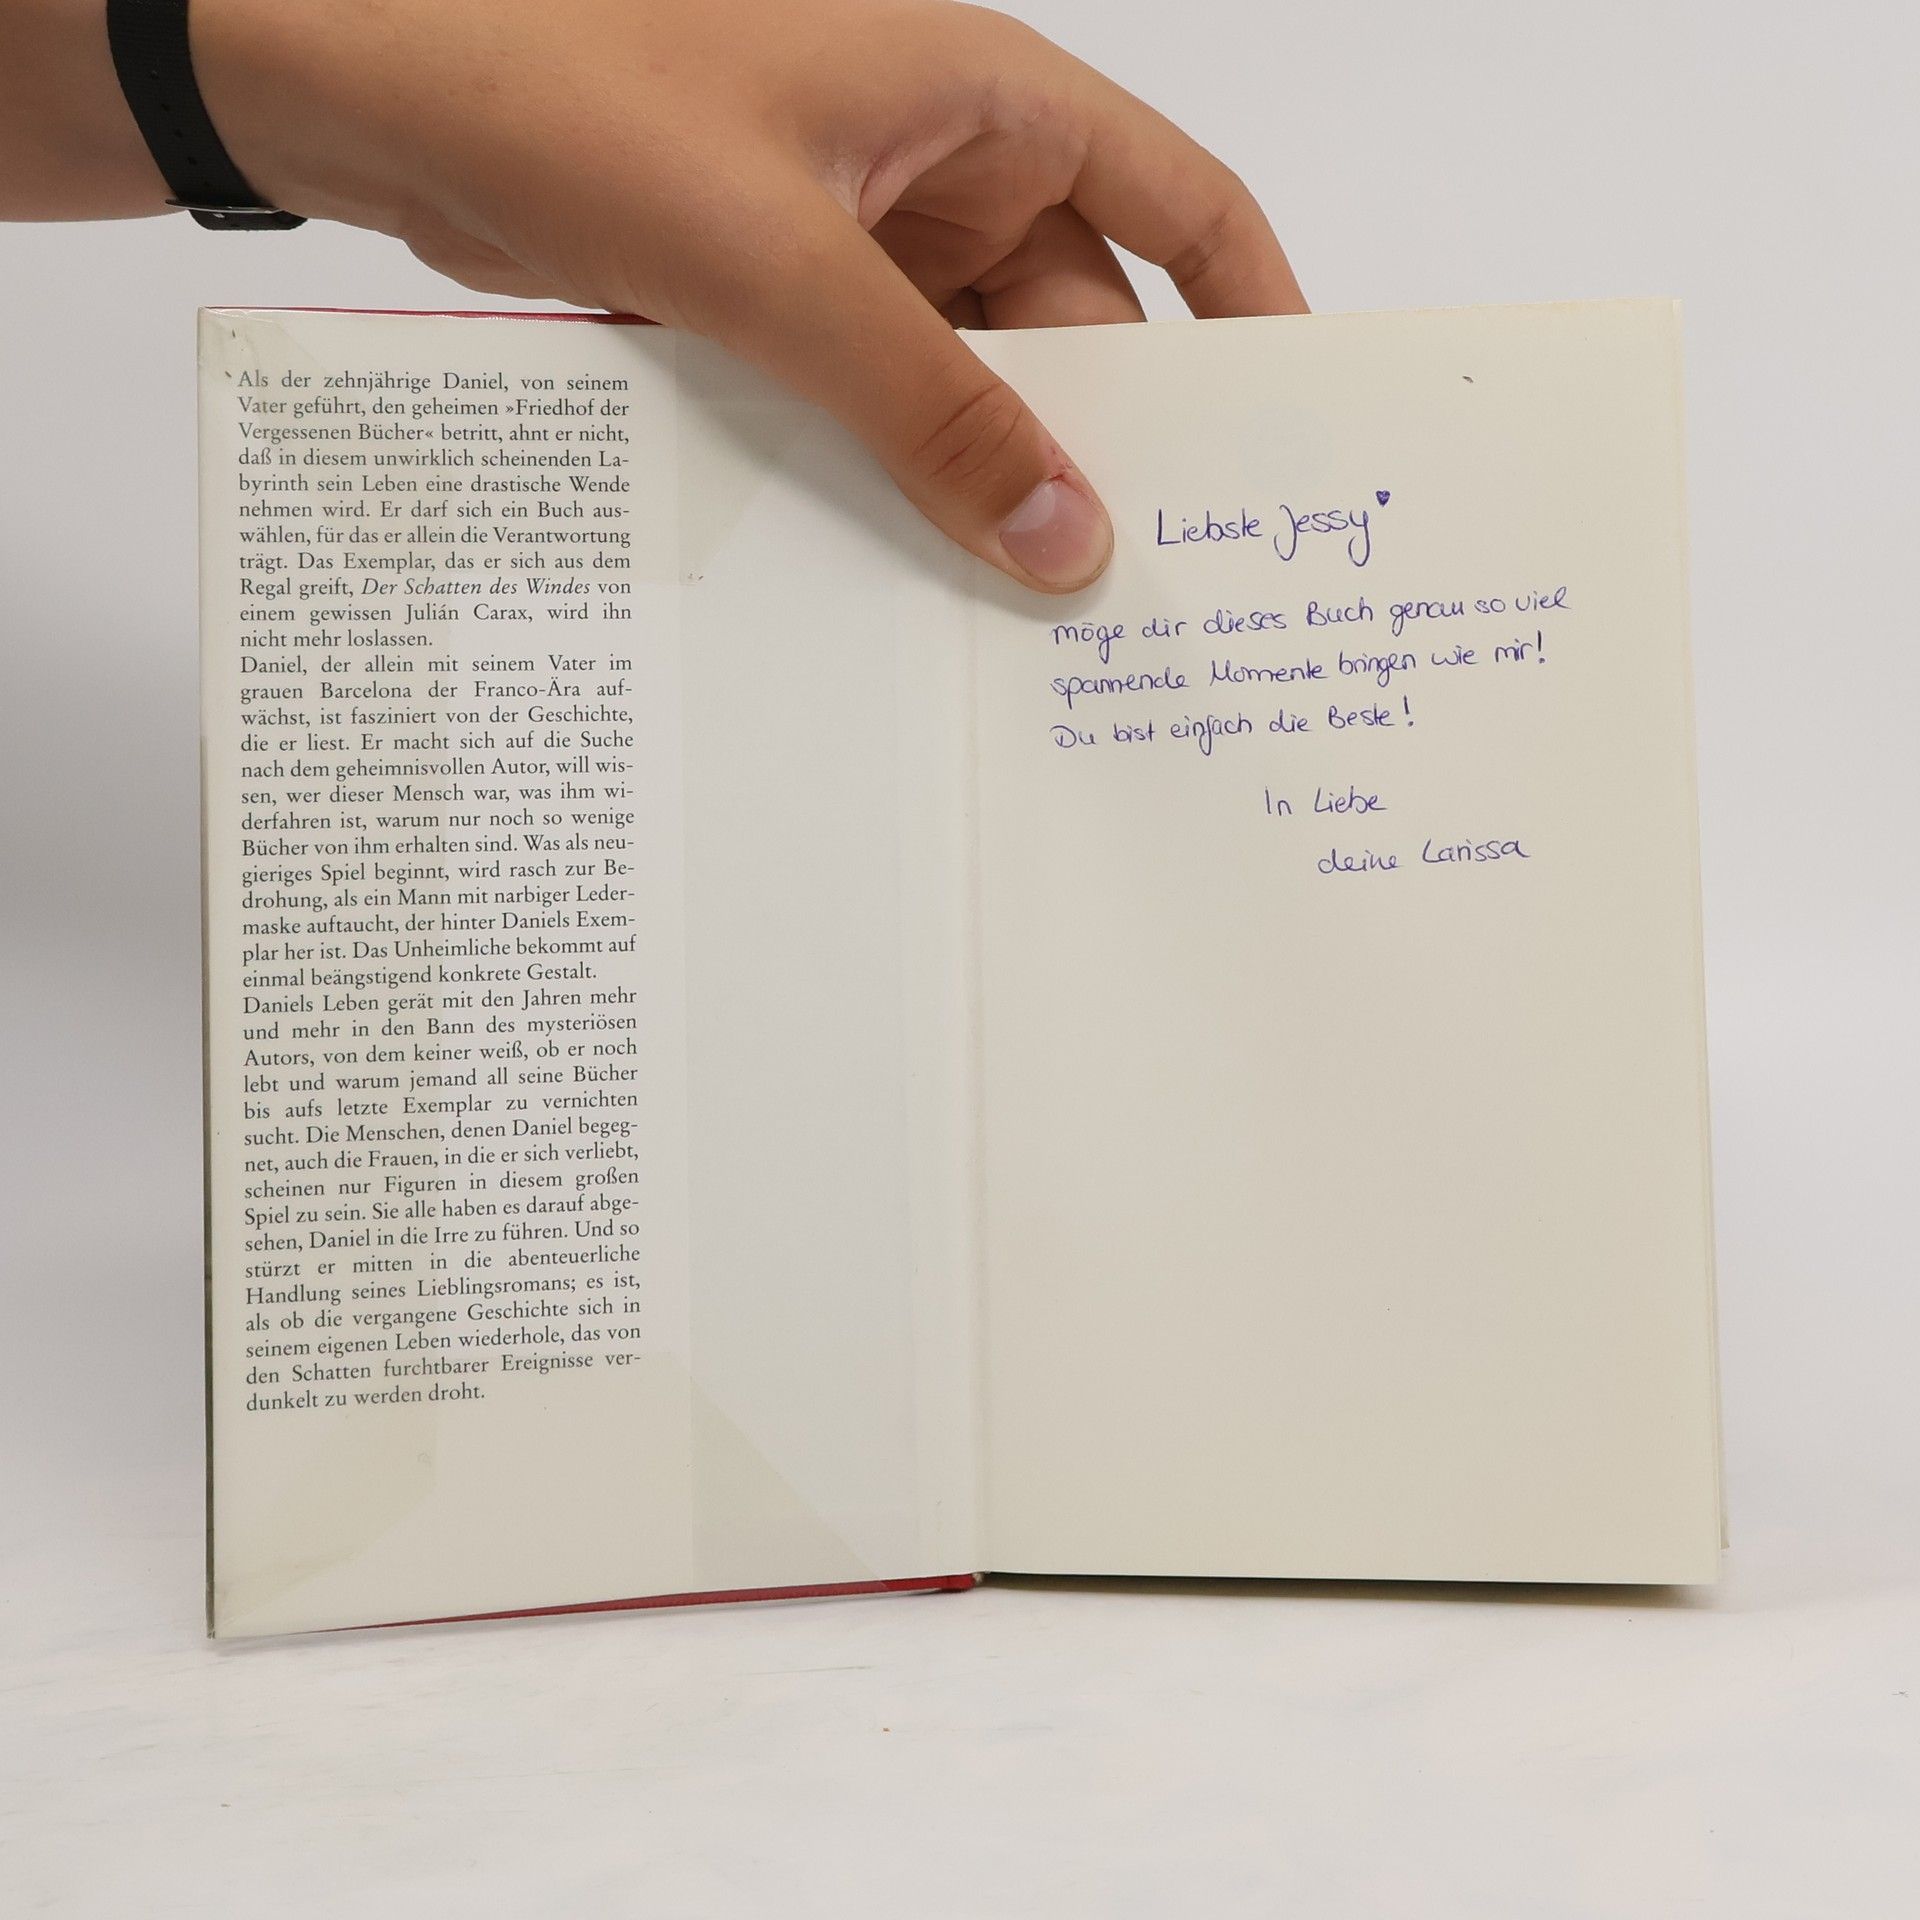 Als der zehnjährige Daniel, von seinem
Vater geführt, den geheimen »Friedhof der
Vergessenen Bücher« betritt, ahnt er nicht,
daß in diesem unwirklich scheinenden La-
byrinth sein Leben eine drastische Wende
nehmen wird. Er darf sich ein Buch aus-
wählen, für das er allein die Verantwortung
trägt. Das Exemplar, das er sich aus dem
Regal greift, Der Schatten des Windes von
einem gewissen Julián Carax, wird ihn
nicht mehr loslassen.
Daniel, der allein mit seinem Vater im
grauen Barcelona der Franco-Ära auf-
wächst, ist fasziniert von der Geschichte,
die er liest. Er macht sich auf die Suche
nach dem geheimnisvollen Autor, will wis-
sen, wer dieser Mensch war, was ihm wi-
derfahren ist, warum nur noch so wenige
Bücher von ihm erhalten sind. Was als neu-
gieriges Spiel beginnt, wird rasch zur Be-
drohung, als ein Mann mit narbiger Leder-
maske auftaucht, der hinter Daniels Exem-
plar her ist. Das Unheimliche bekommt auf
einmal beängstigend konkrete Gestalt.
Daniels Leben gerät mit den Jahren mehr
und mehr in den Bann des mysteriösen
Autors, von dem keiner weiß, ob er noch
lebt und warum jemand all seine Bücher
bis aufs letzte Exemplar zu vernichten
sucht. Die Menschen, denen Daniel begeg-
net, auch die Frauen, in die er sich verliebt,
scheinen nur Figuren in diesem großen
Spiel zu sein. Sie alle haben es darauf abge-
sehen, Daniel in die Irre zu führen. Und so
stürzt er mitten in die abenteuerliche
Handlung seines Lieblingsromans; es ist,
als ob die vergangene Geschichte sich in
seinem eigenen Leben wiederhole, das von
den Schatten furchtbarer Ereignisse ver-
dunkelt zu werden droht.
Liebste Jessy
möge dir dieses Buch genau so viel
spannende Momente bringen wie mir!
Du bist einfach die Beste!
In Liebe
deine Larissa